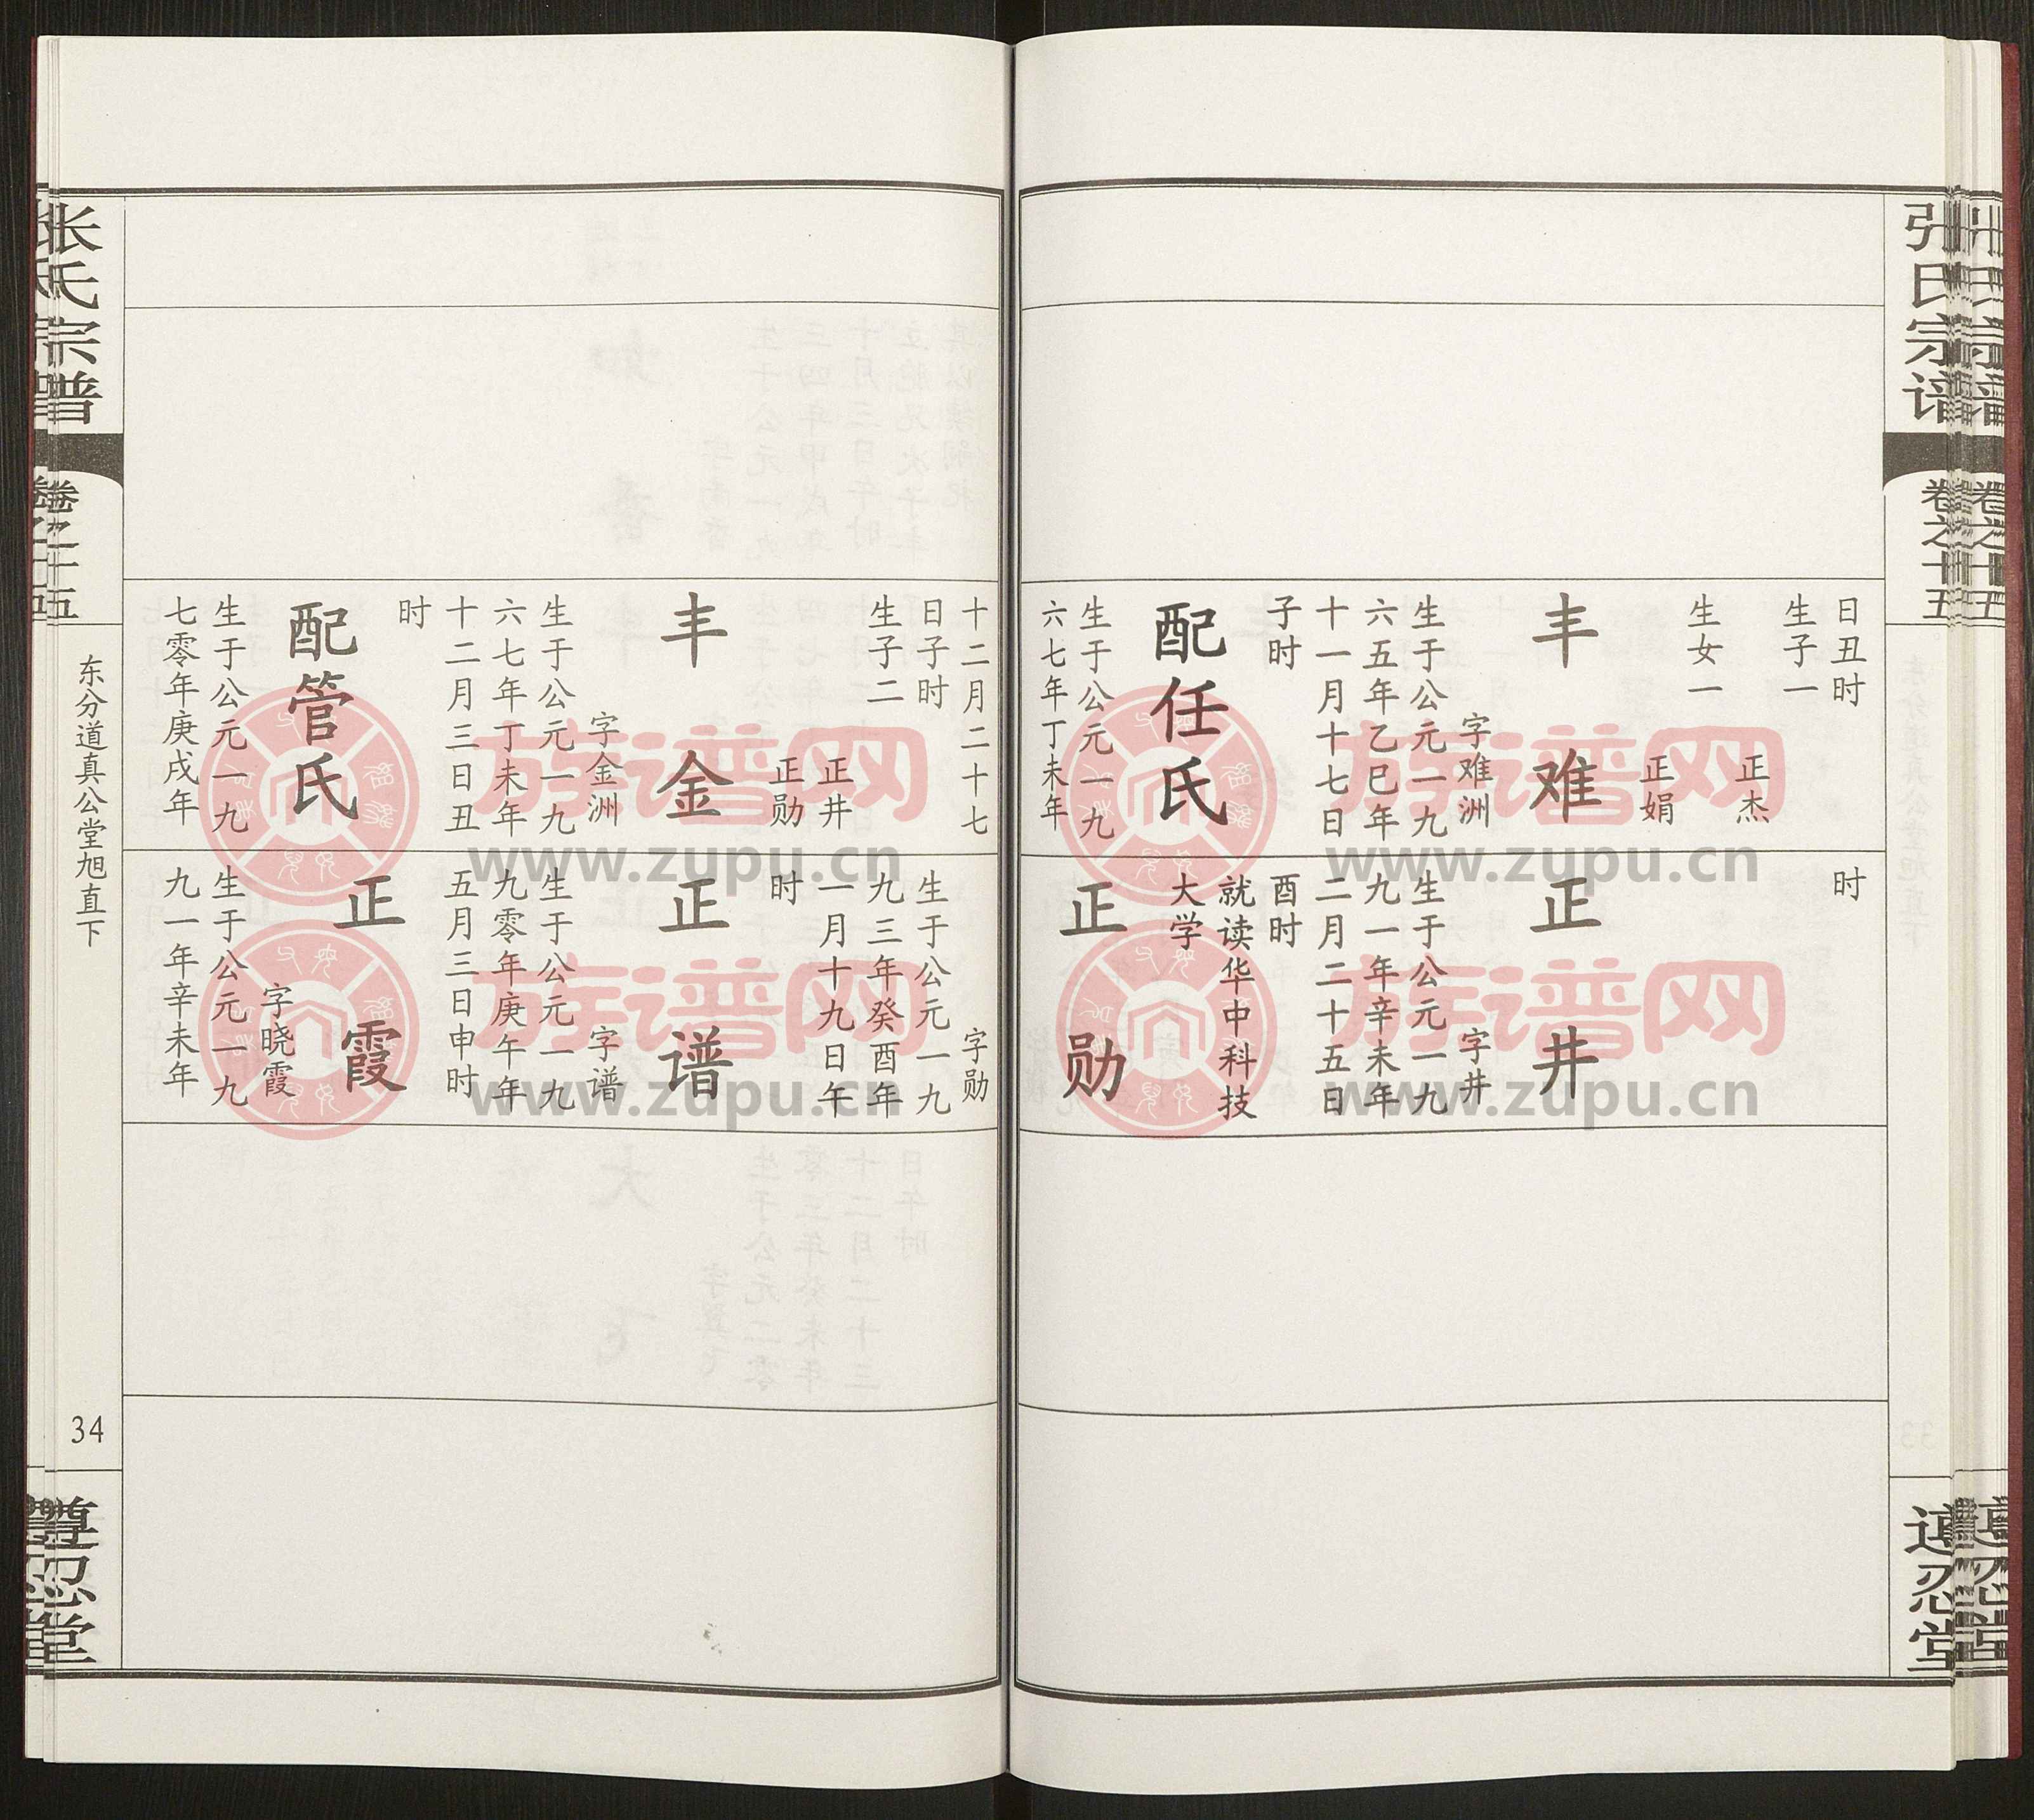 张氏宗谱
卷之十五
遵忍堂
日丑时
生子一
正杰
生女一
正娟
丰难
字难洲
生于公元一九
六五年乙巳年
十一月十七日
子时
配任氏
生于公元一九
六七年丁未年
时
正井
字井
生于公元一九
九一年辛未年
二月二十五日
酉时
就读华中科技
大学
正勋
十二月二十七
日子时
生子二
正井
正勋
丰金
字金洲
生于公元一九
六七年丁未年
十二月三日丑
时
配管氏
生于公元一九
七零年庚戌年
字勋
生于公元一九
九三年癸酉年
一月十九日午
时
正谱
字谱
生于公元一九
九零年庚午年
五月三日申时
正霞
字晓霞
生于公元一九
九一年辛未年
张氏宗谱
卷之十五
东分道真公堂旭直下
34
遵忍堂
族谱网
www.zupu.cn
族谱网
www.zupu.cn
族谱网
www.zupu.cn
族谱网
www.zupu.cn